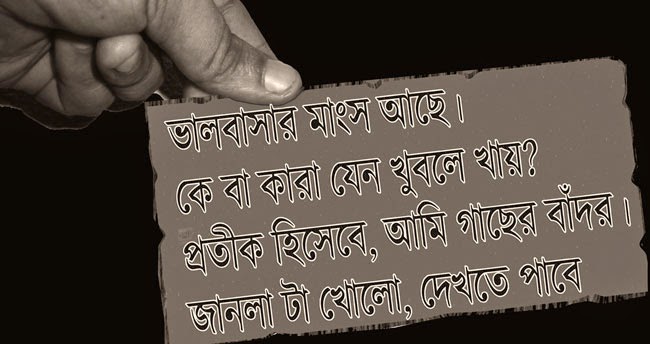 ভালবাসার মাংস আছে।
কে বা কারা যেন খুবলে খায়?
প্রতীক হিসেবে, আমি গাছের বাঁদর।
জানলা টা খোলো, দেখতে পাবে